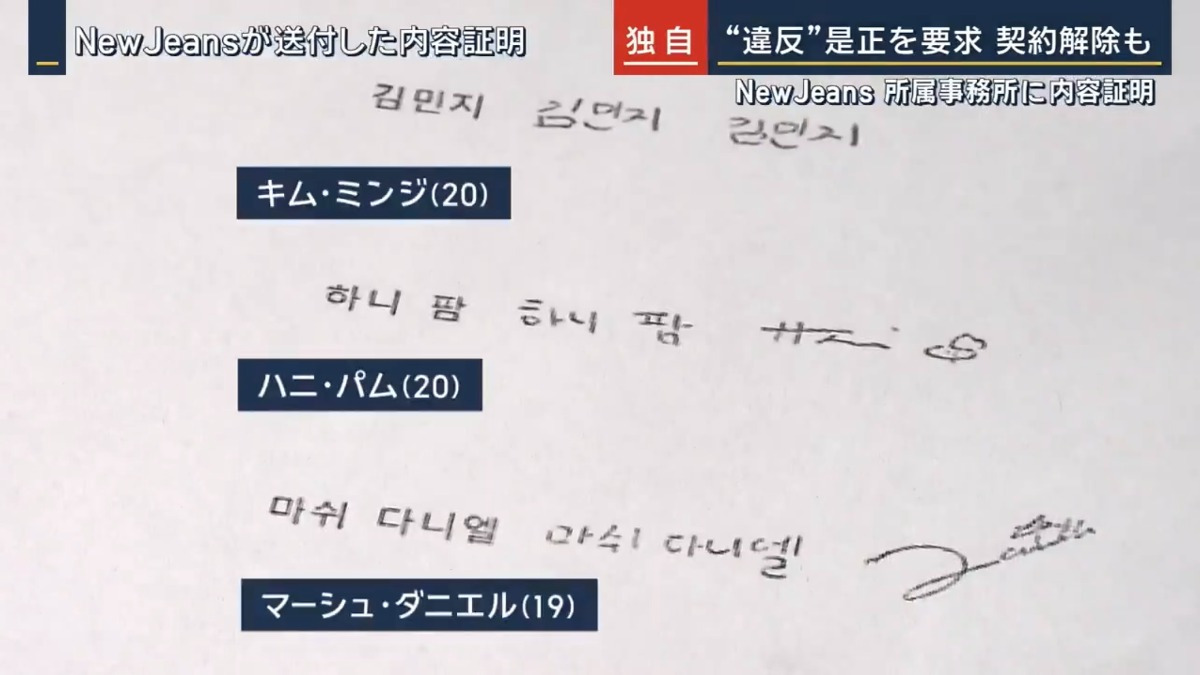 NewJeansが送付した内容証明
独自 “違反”是正を要求 契約解除も
NewJeans 所属事務所に内容証明
김민지 김민지 김민지
キム・ミンジ(20)
하니 팜 하니 팜
ハニ・パム(20)
마쉬 다니엘 마쉬 다니엘
マーシュ・ダニエル(19)